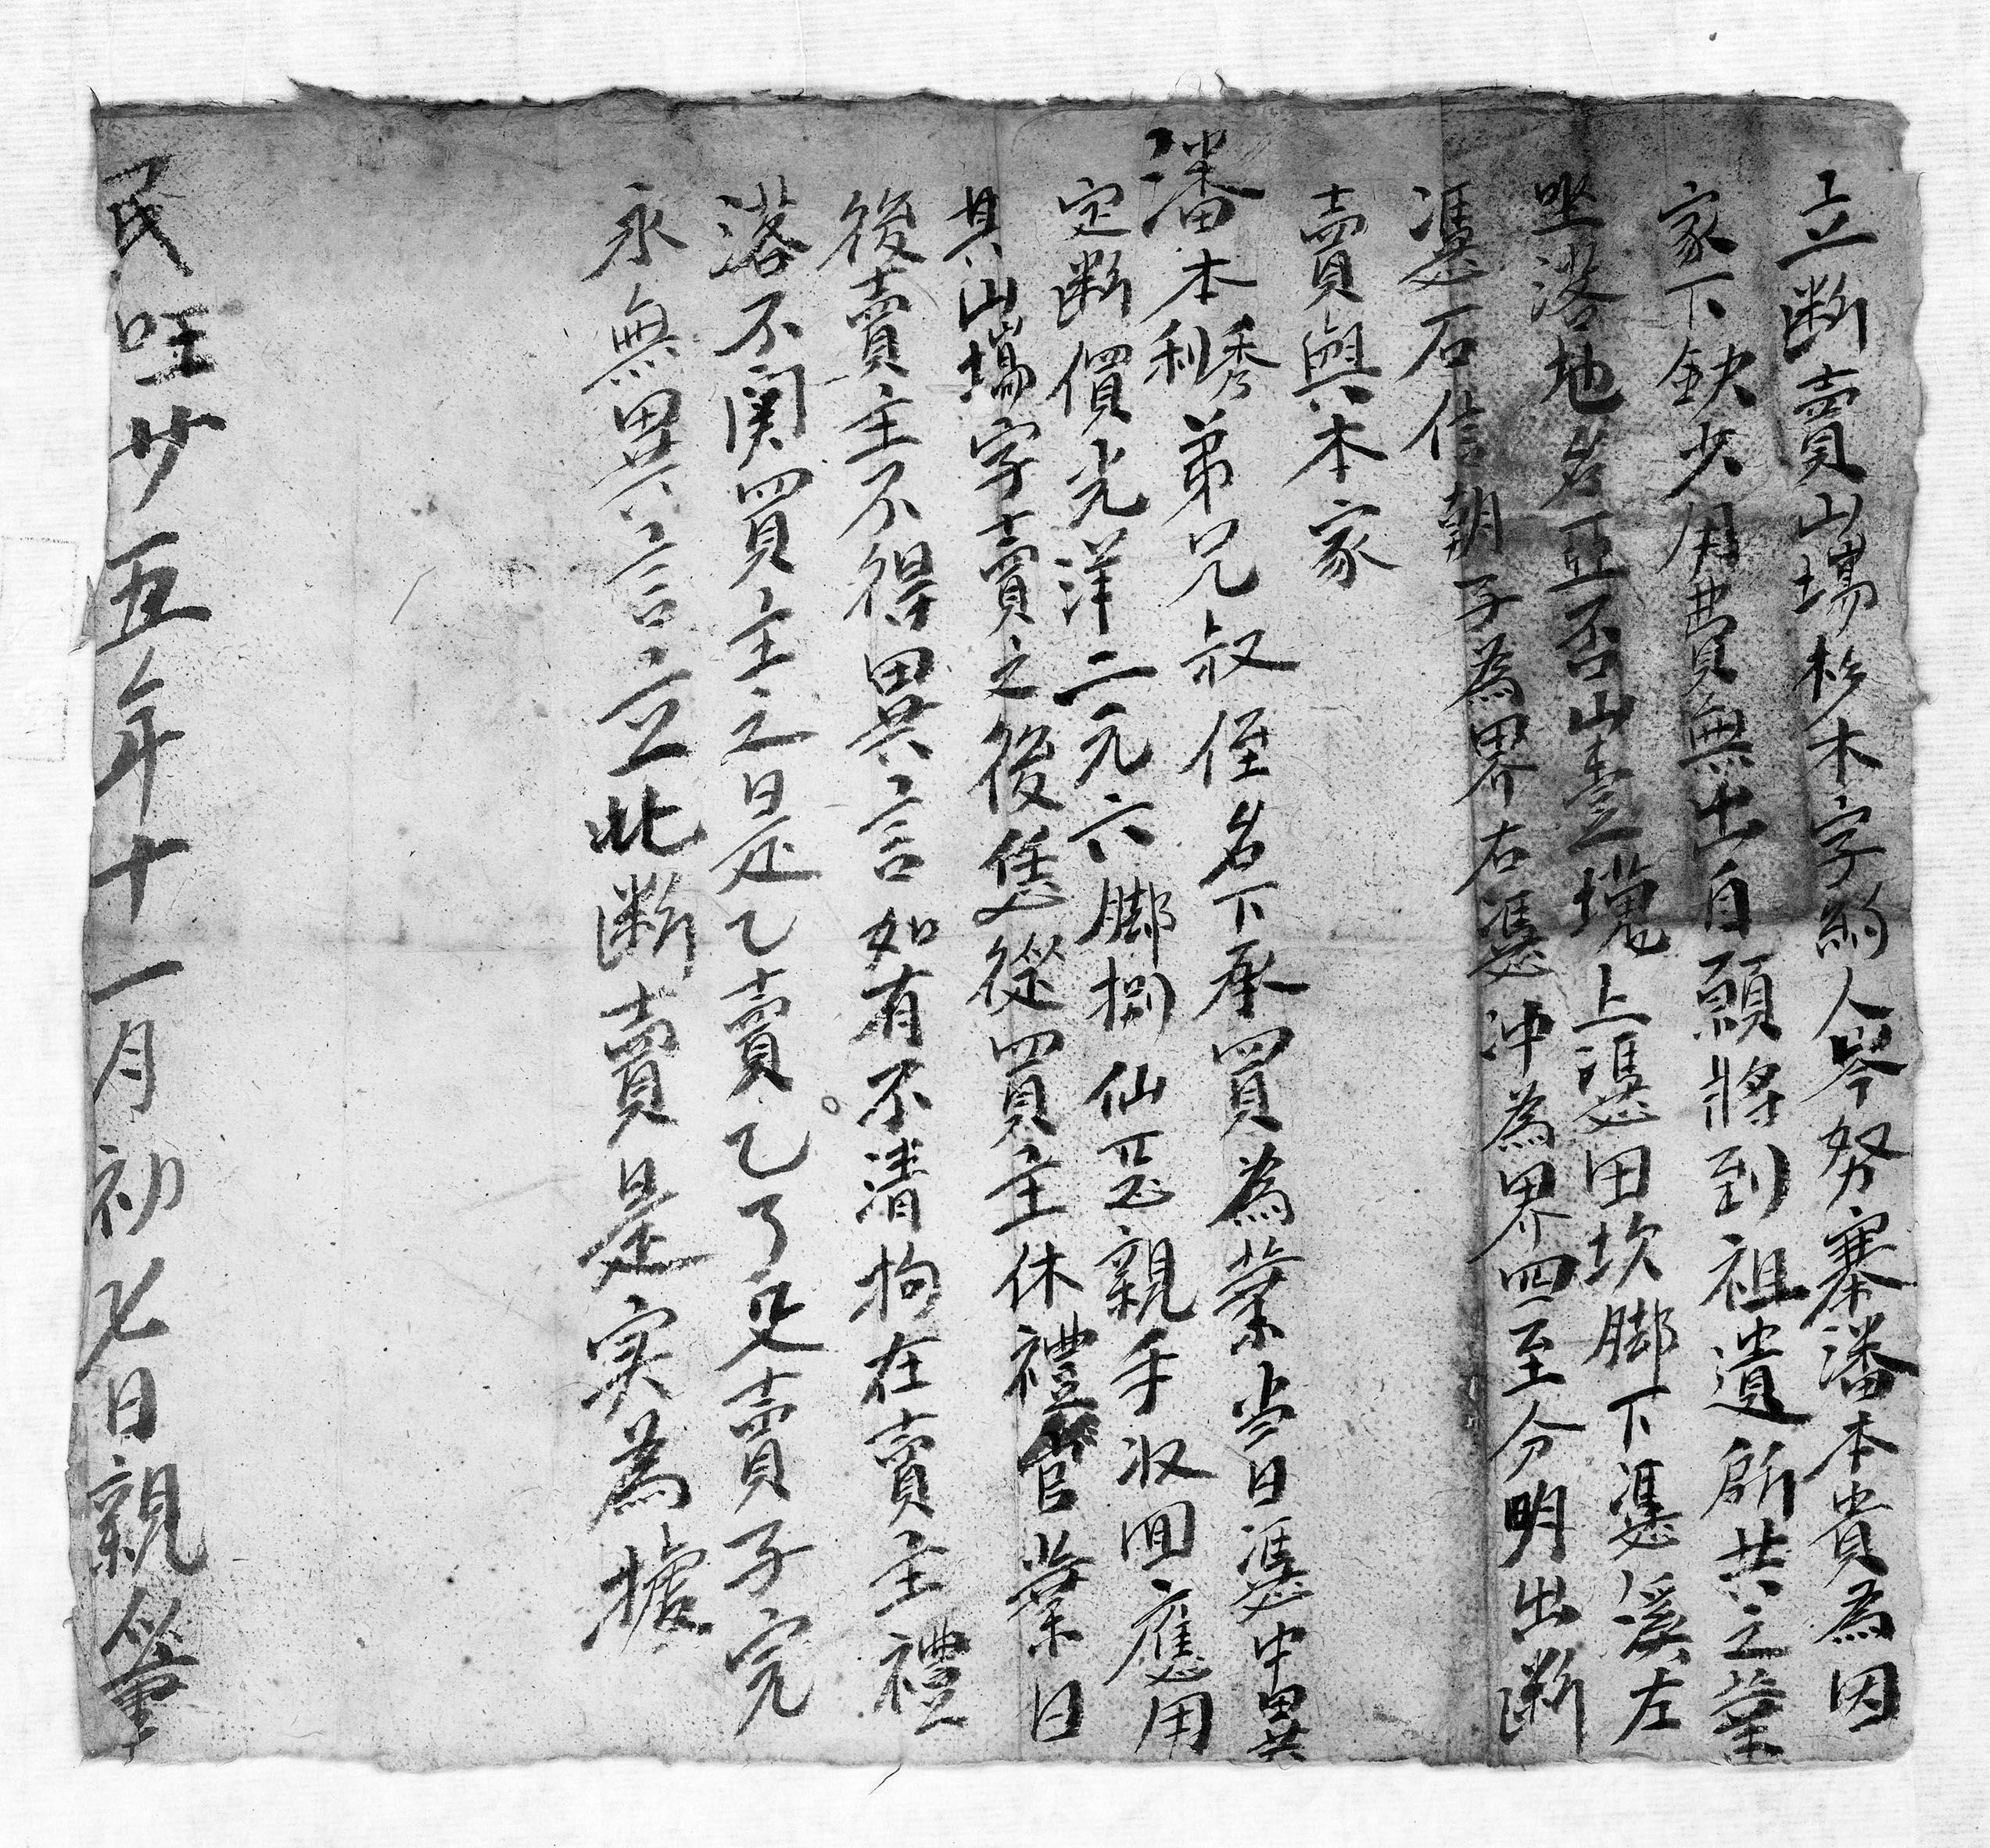 立斷賣山塲杉木字約人岑努寨潘本貴為因
家下缺少用費無出自願將到祖遺所共之業
坐落地名亚丕山壹塊上凴田坎脚下凴溪左
凴石信朝子為界右凴冲為界四至分明出斷
賣與本家
潘本利秀弟兄叔侄名下承買為業当日凴中異
定斷價光洋二元六脚捌仙正親手收回應用
其山塲字賣之後恁從買主休禮官業日
後賣主不得異言如有不清拘在賣主禮
落不関買主之日是乙賣乙了足賣子完
永無異言立此斷賣是実為㨿
民旺廿五年十一月初七日親筆